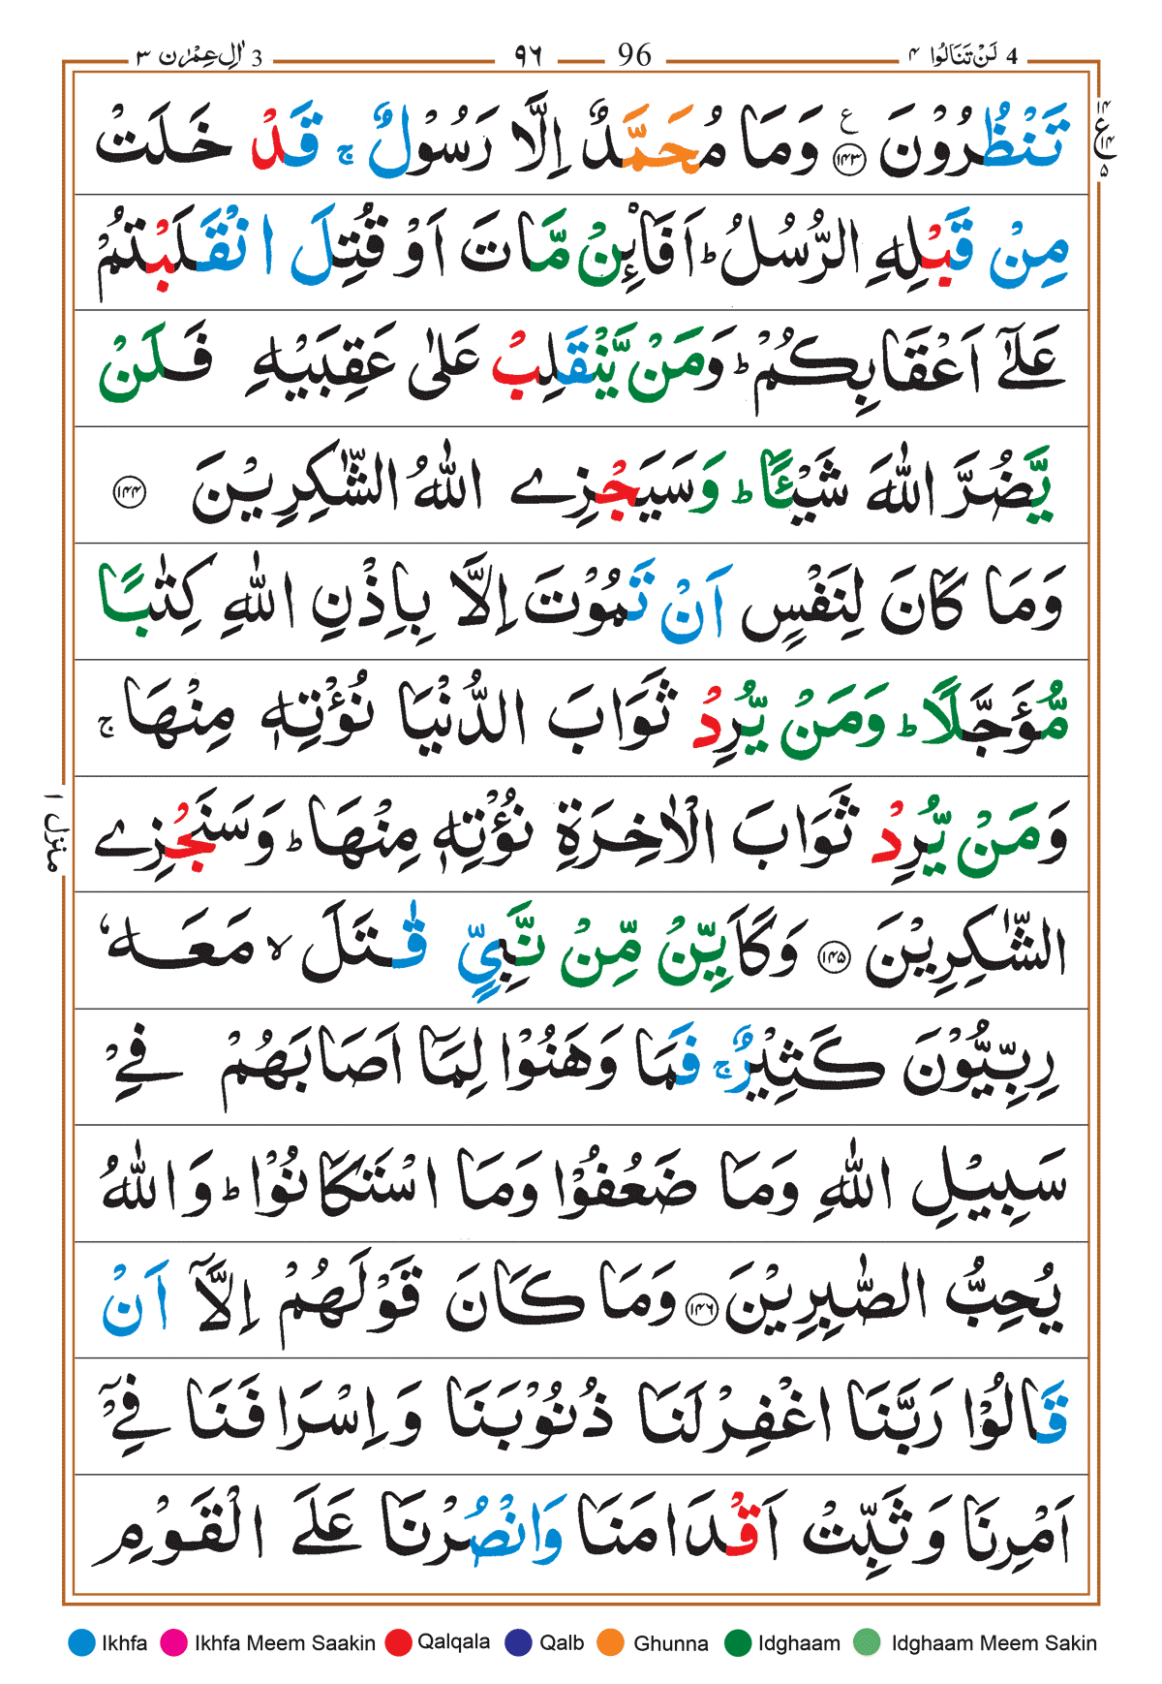 4 لَنْ تَنَالُوا ۴ 96 ۹۶ 3 اٰلِ عِمْرٰن ۳
تَنْظُرُوْنَ ﴿۱۴۳﴾ ع وَمَا مُحَمَّدٌ اِلَّا رَسُوْلٌ ۚ قَدْ خَلَتْ
مِنْ قَبْلِهِ الرُّسُلُ ؕ اَفَا۠ئِنْ مَّاتَ اَوْ قُتِلَ انْقَلَبْتُمْ
عَلٰٓى اَعْقَابِكُمْ ؕ وَمَنْ يَّنْقَلِبْ عَلٰى عَقِبَيْهِ فَلَنْ
يَّضُرَّ اللّٰهَ شَيْـًٔا ؕ وَسَيَجْزِى اللّٰهُ الشّٰكِرِيْنَ ﴿۱۴۴﴾
وَمَا كَانَ لِنَفْسٍ اَنْ تَمُوْتَ اِلَّا بِاِذْنِ اللّٰهِ كِتٰبًا
مُّؤَجَّلًا ؕ وَمَنْ يُّرِدْ ثَوَابَ الدُّنْيَا نُؤْتِهٖ مِنْهَا ۚ
وَمَنْ يُّرِدْ ثَوَابَ الْاٰخِرَةِ نُؤْتِهٖ مِنْهَا ؕ وَسَنَجْزِى
الشّٰكِرِيْنَ ﴿۱۴۵﴾ وَكَاَيِّنْ مِّنْ نَّبِىٍّ قٰتَلَ ۙ مَعَهٗ
رِبِّيُّوْنَ كَثِيْرٌ ۚ فَمَا وَهَنُوْا لِمَاۤ اَصَابَهُمْ فِىْ
سَبِيْلِ اللّٰهِ وَمَا ضَعُفُوْا وَمَا اسْتَكَانُوْا ؕ وَاللّٰهُ
يُحِبُّ الصّٰبِرِيْنَ ﴿۱۴۶﴾ وَمَا كَانَ قَوْلَهُمْ اِلَّاۤ اَنْ
قَالُوْا رَبَّنَا اغْفِرْ لَنَا ذُنُوْبَنَا وَاِسْرَافَنَا فِىْۤ
اَمْرِنَا وَثَبِّتْ اَقْدَامَنَا وَانْصُرْنَا عَلَى الْقَوْمِ
ع ۱۴ ۱۴ ۵
منزل ۱
Ikhfa Ikhfa Meem Saakin Qalqala Qalb Ghunna Idghaam Idghaam Meem Sakin